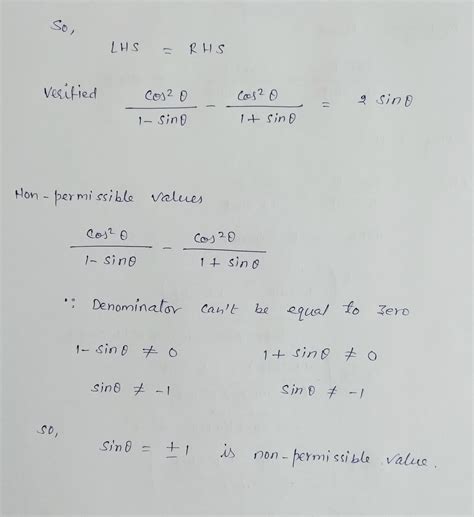 So,
LHS = RHS
Verified cos² θ / 1 - sinθ - cos² θ / 1 + sinθ = 2 sinθ
Non-permissible values
cos² θ / 1 - sinθ - cos² θ / 1 + sinθ
∵ Denominator can't be equal to zero
1 - sinθ ≠ 0 1 + sinθ ≠ 0
sinθ ≠ -1 sinθ ≠ -1
so,
sinθ = ±1 is non-permissible value.